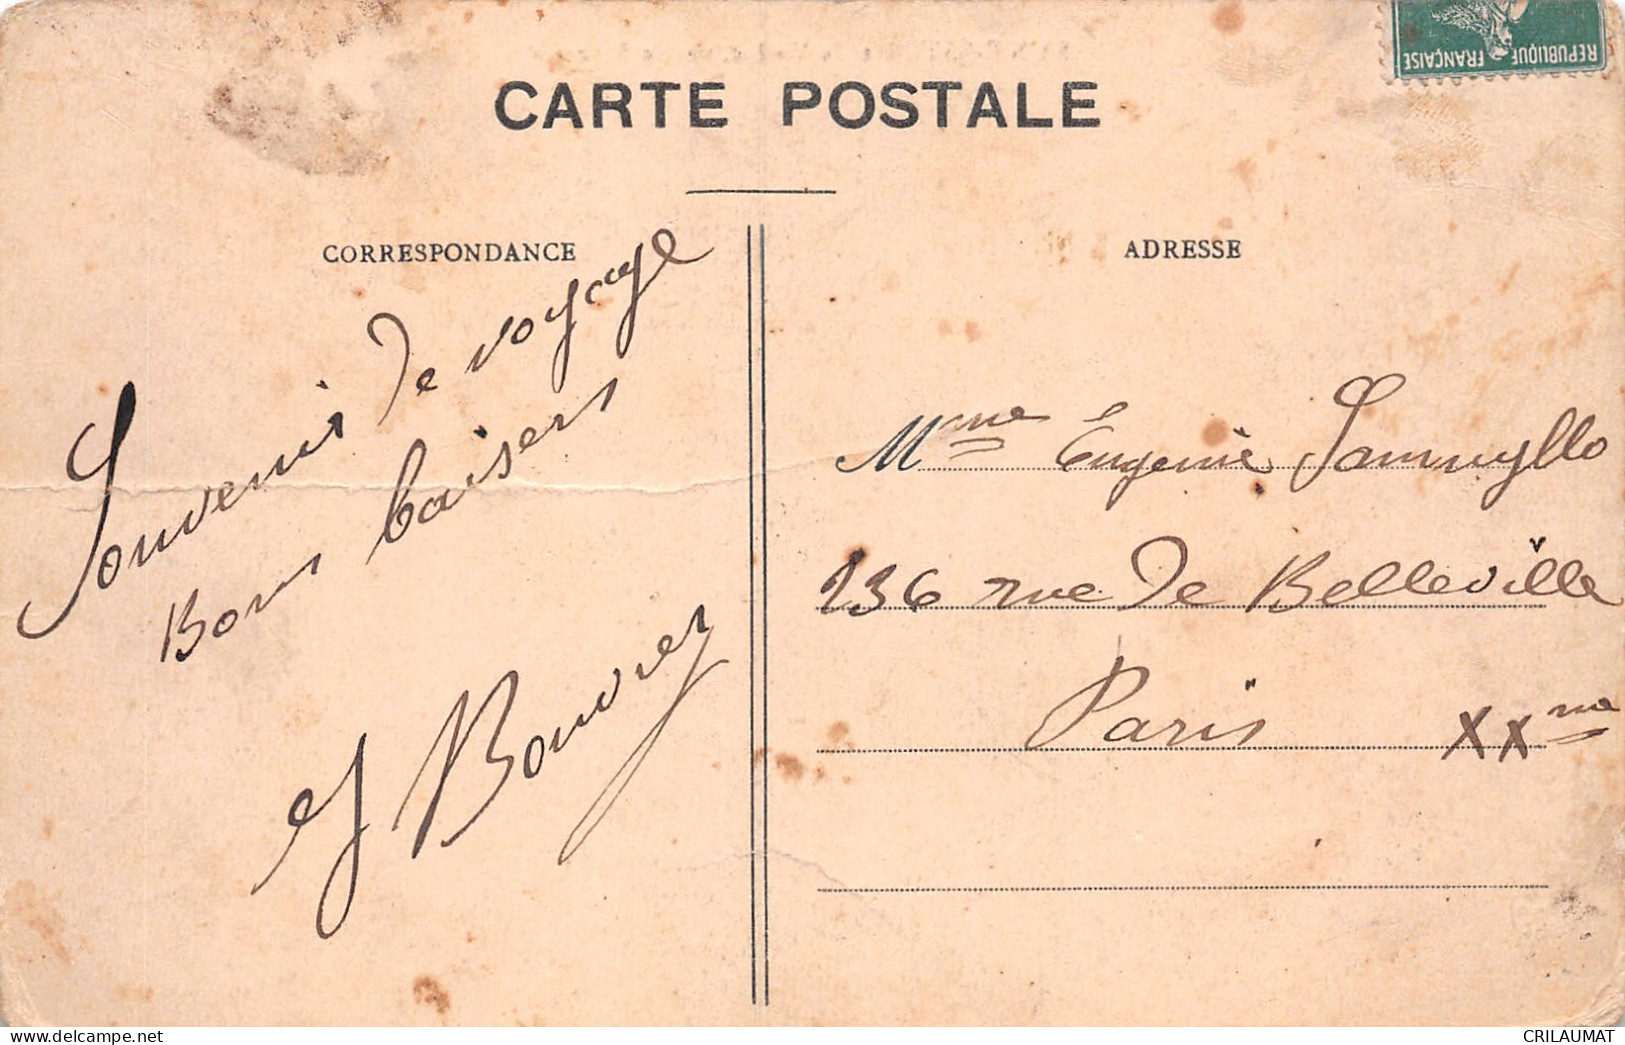 REPUBLIQUE FRANÇAISE
CARTE POSTALE
CORRESPONDANCE
Souvenir de voyage
Bons baisers
Bouvrey
ADRESSE
Mme Eugenie
236 rue de Belleville
Paris XXme
www.delcampe.net
CRILAUMAT